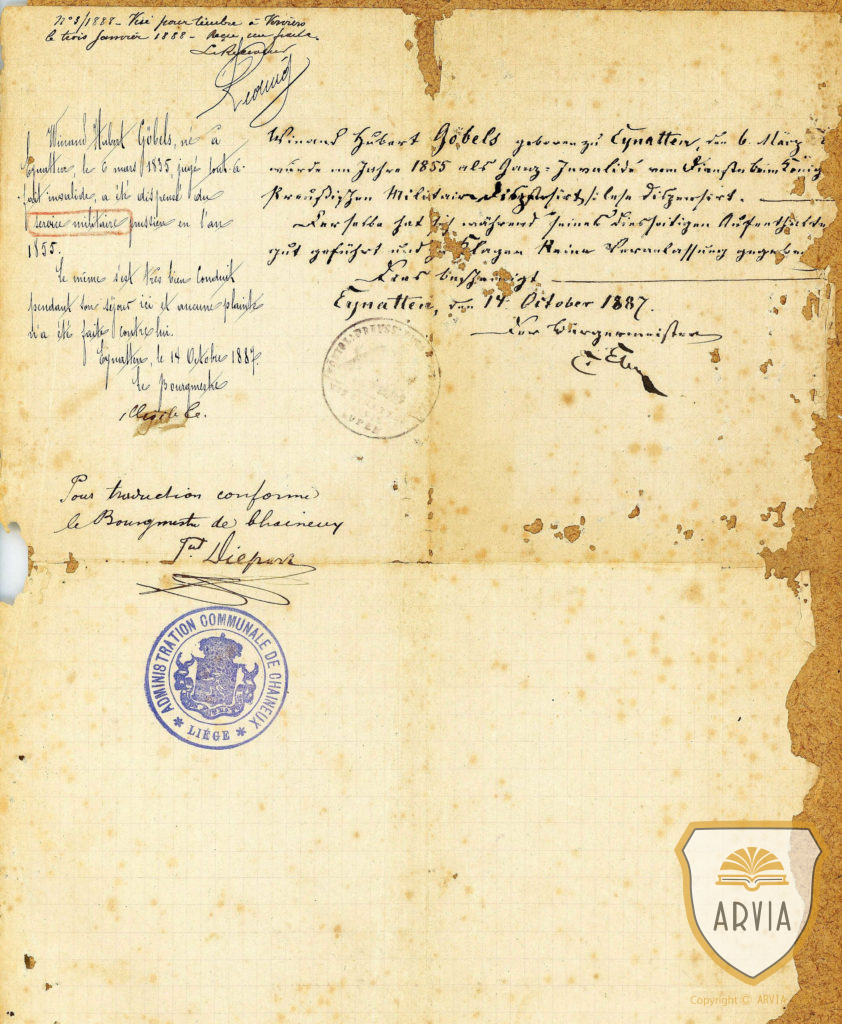 N° 8/1888 - Visé pour timbre à Verviers
le trois Janvier 1888 - Reçu
Le Receveur
Winand Hubert Göbels, né à
Eynatten, le 6 mars 1835, jugé tout-à-
fait invalide, a été dispensé du
service militaire prussien en l'an
1855.
Le même s'est très bien conduit
pendant son séjour ici et aucune plainte
n'a été faite contre lui.
Eynatten, le 14 Octobre 1887.
Le Bourgmestre
Winand Hubert Göbels geboren zu Eynatten, den 6. März
wurde im Jahre 1855 als Ganz-Invalide vom Dienste beim König
Preußischen Militair dispensirt.
Derselbe hat sich während seines diesseitigen Aufenthaltes
gut geführt und zu Klagen keine Veranlassung gegeben
Dies bescheinigt
Eynatten, den 14. October 1887.
Der Bürgermeister
Pour traduction conforme
le Bourgmestre de Chaineux
ADMINISTRATION COMMUNALE DE CHAINEUX
* LIÉGE *
ARVIA
Copyright © ARVIA